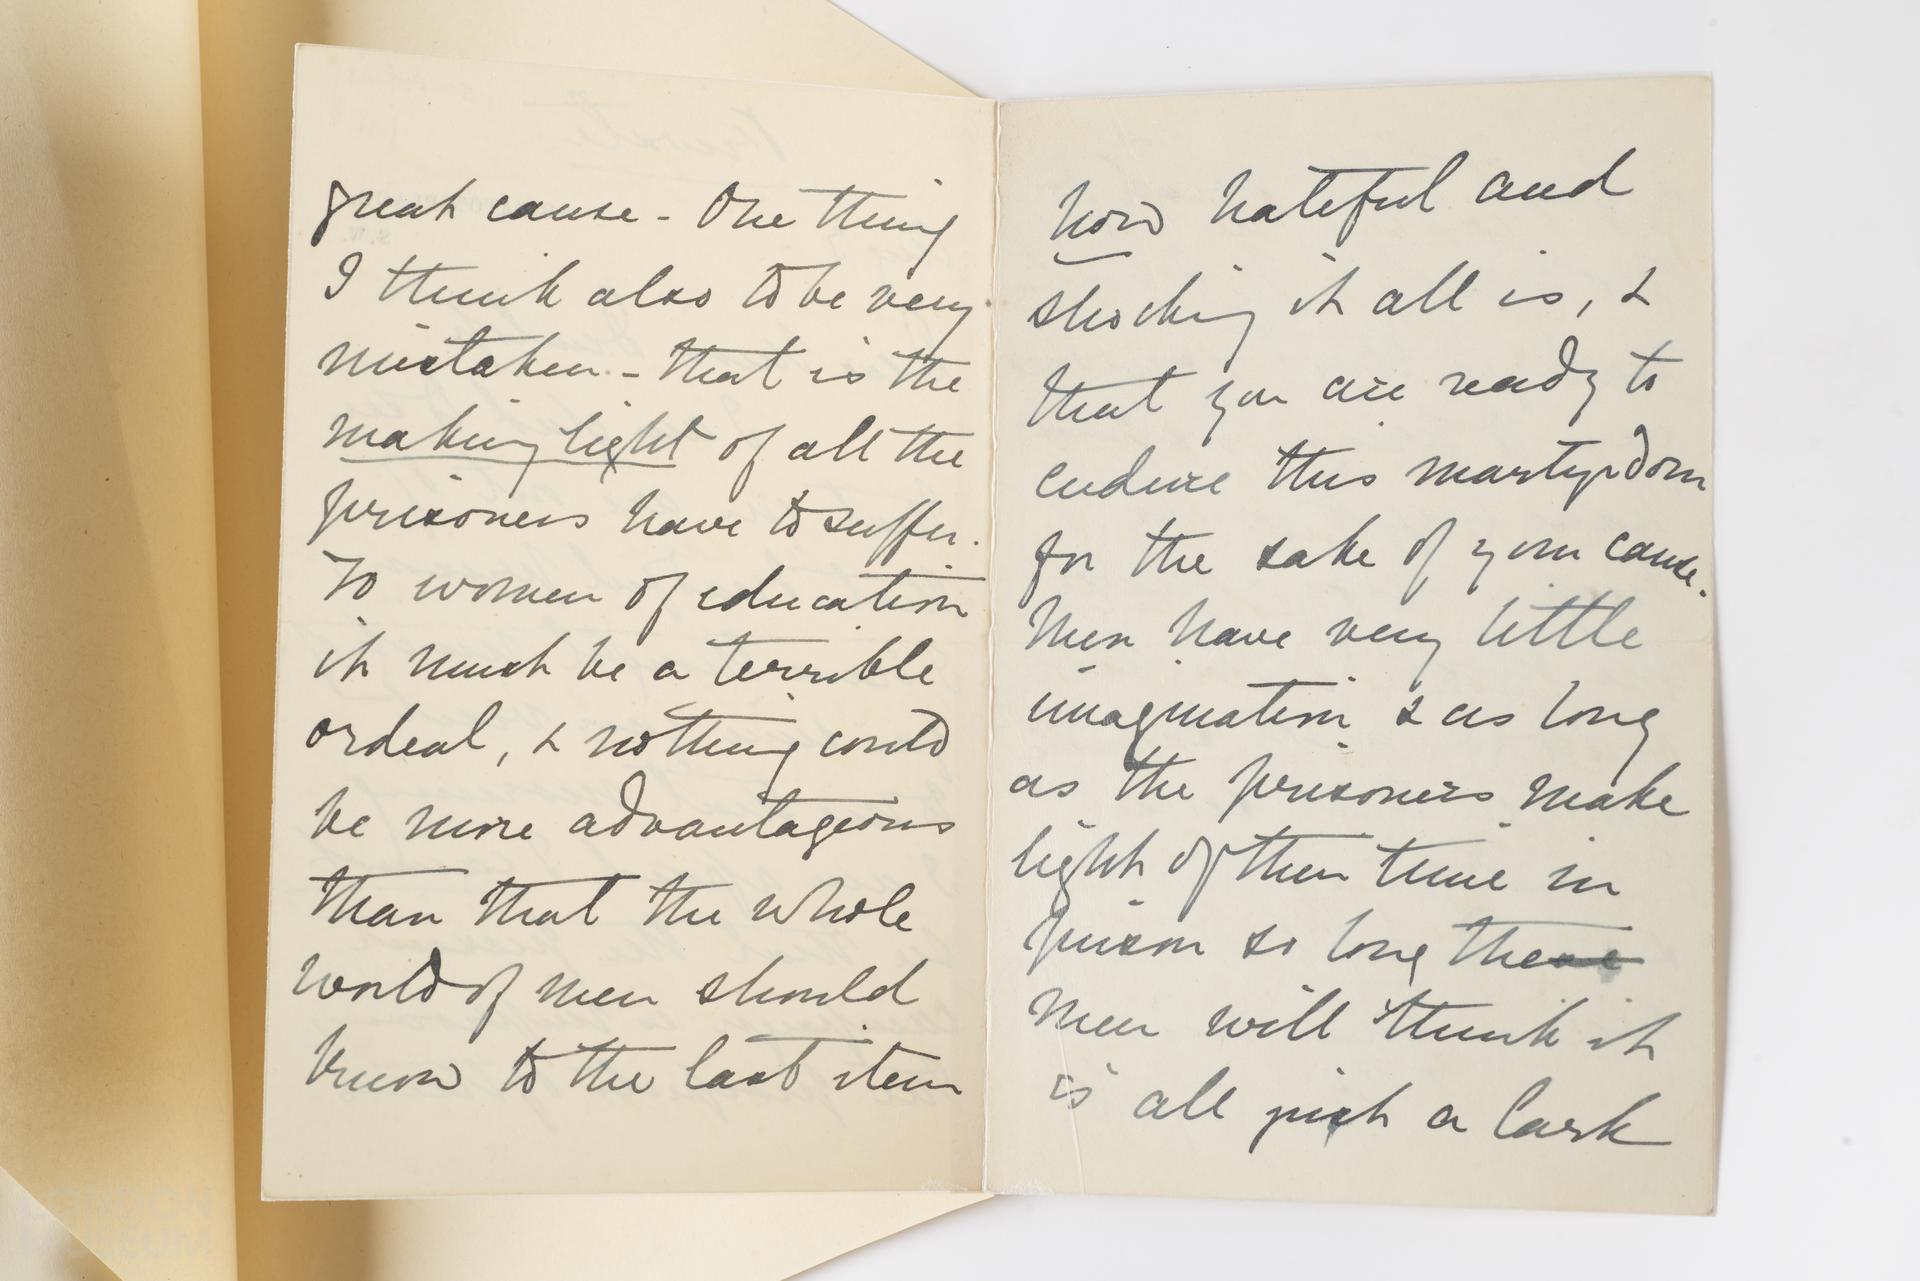 great cause - One thing
I think also to be very
mistaken - that is the
making light of all the
prisoners have to suffer.
To women of education
it must be a terrible
ordeal, & nothing could
be more advantageous
than that the whole
world of men should
know to the last item
how hateful and
shocking it all is, &
that you are ready to
endure this martyrdom
for the sake of your cause.
Men have very little
imagination & as long
as the prisoners make
light of their time in
prison so long these
men will think it
is all just a lark
LONDON
MUSEUM